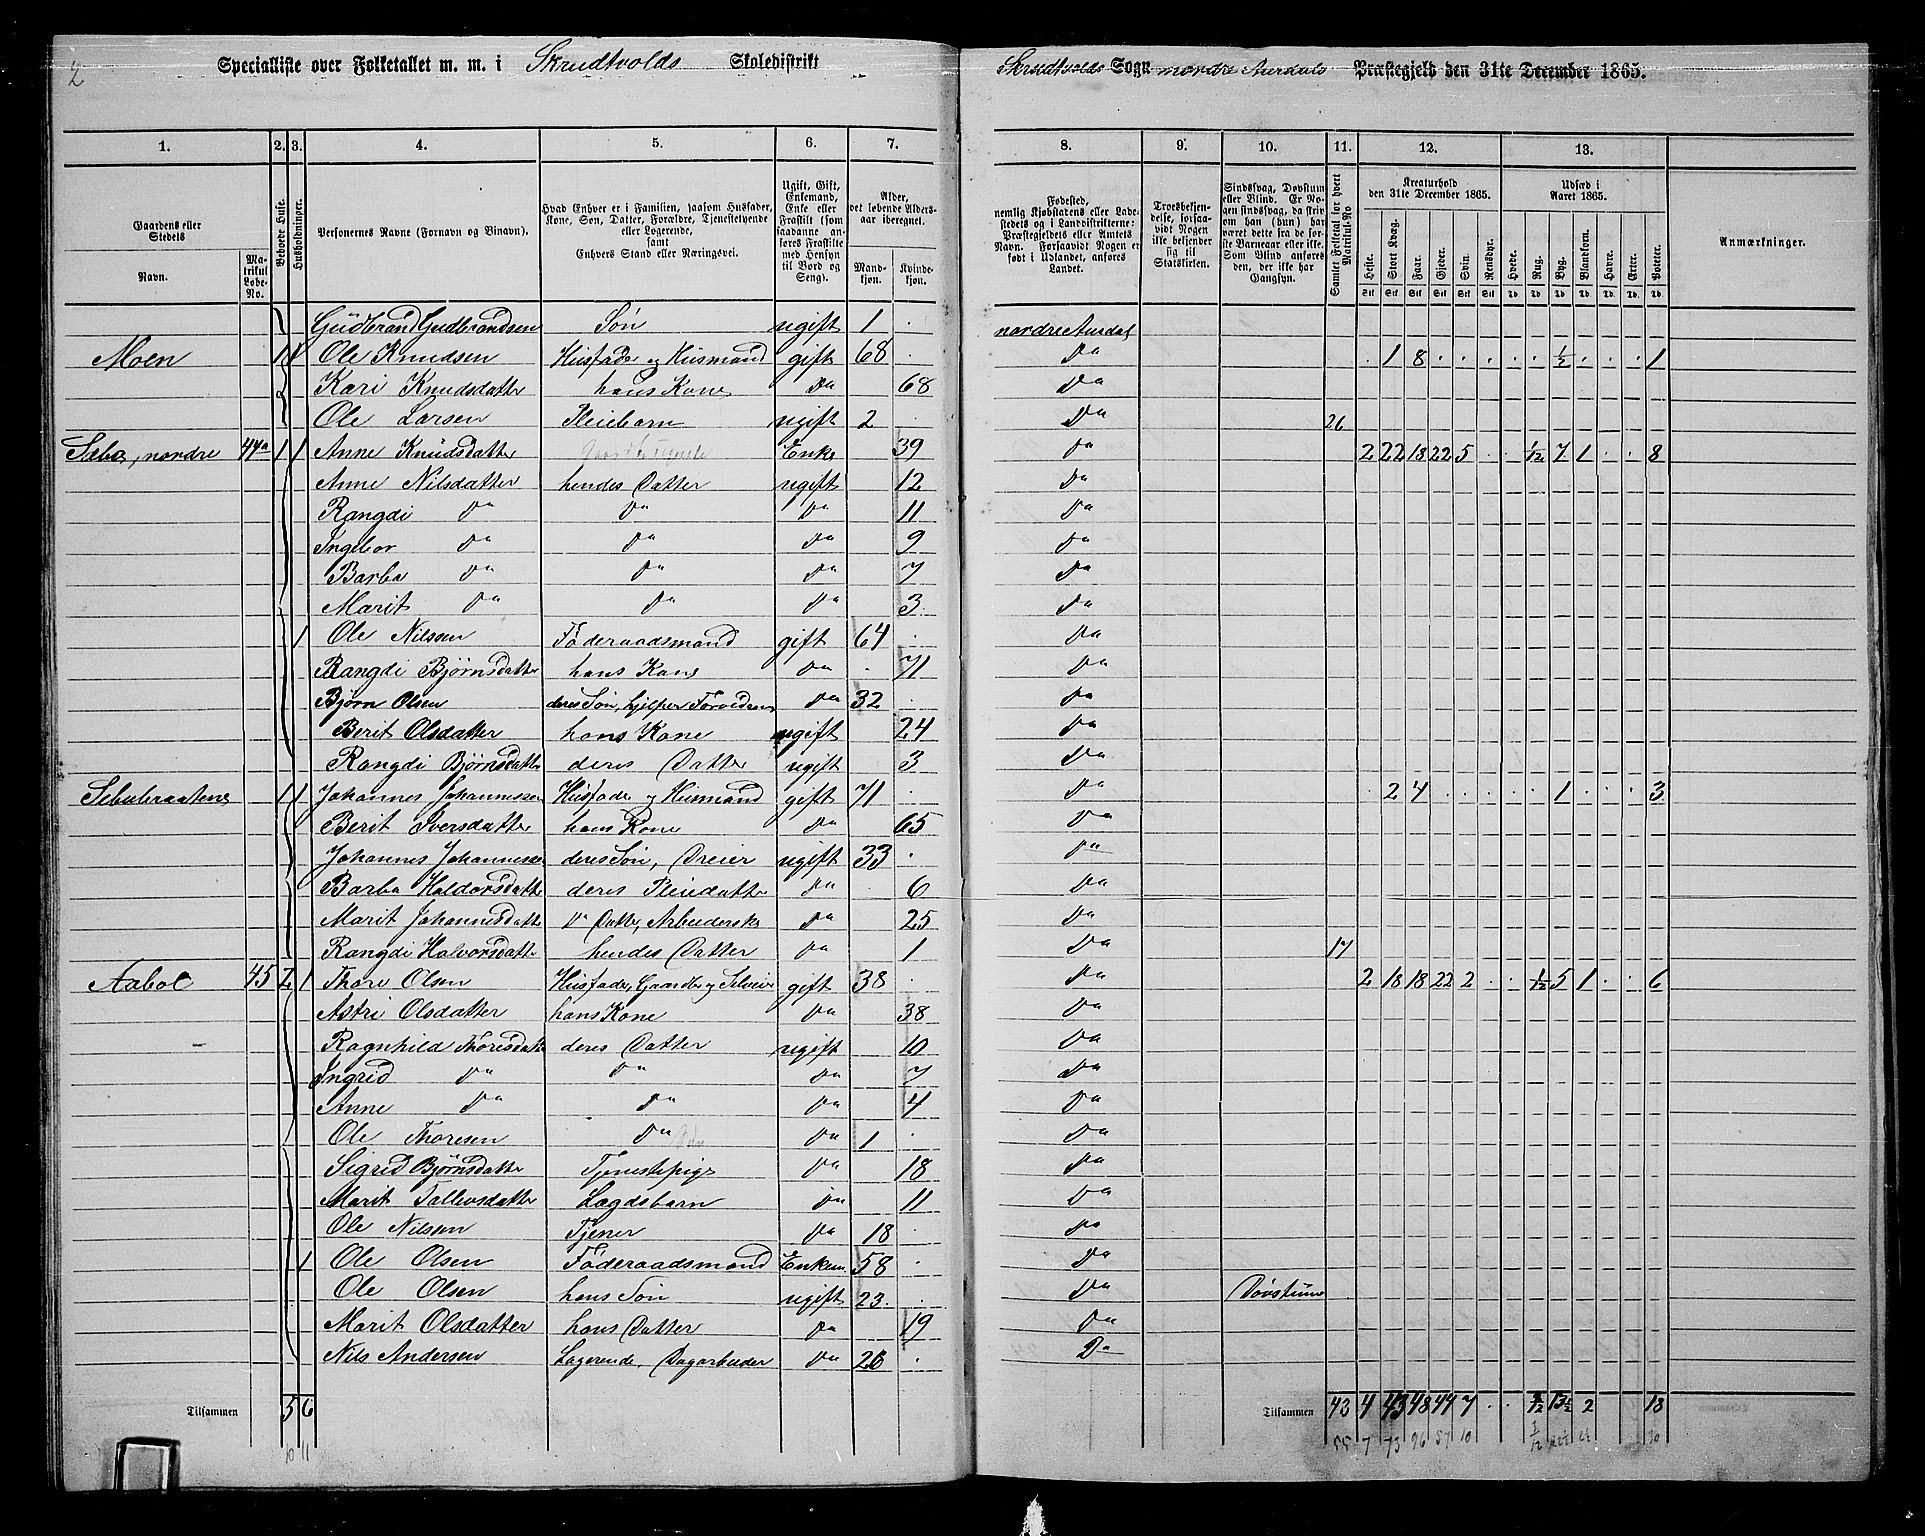 2
Specialliste over Folketallet m. m. i Skrudtvolds Skoledistrikt
Skrudtvolds Sogn nordre Aurdals Præstegjeld den 31te December 1865.
1. 2. 3. 4. 5. 6. 7. 8. 9. 10. 11. 12. 13.
Gaardens eller Stedets
Navn.
Matrikul Løbe-No.
Beboede Huse.
Husholdninger.
Personernes Navne (Fornavn og Binavn).
Hvad Enhver er i Familien, saasom Husfader, Kone, Søn, Datter, Forældre, Tjenestetyende eller Logerende, samt Enhvers Stand eller Næringsvei.
Ugift, Gift, Enkemand, Enke eller Fraskilt (som saadanne anføres Fraskilte med Hensyn til Bord og Seng).
Alder, det løbende Aldersaar iberegnet.
Mandkjøn. Kvindekjøn.
Fødested, nemlig Kjøbstadens eller Ladestedets og i Landdistrikterne: Præstegjeldets eller Amtets Navn. Forsaavidt Nogen er født i Udlandet, anføres Landet.
Troesbekjendelse, forsaavidt Nogen ikke bekjender sig til Statskirken.
Sindssvag, Døvstum eller Blind. Er Nogen sindssvag, da skriv om han (hun) har været dette fra de første Barneaar eller ikke. Som Blind anføres den, der ikke har Gangsyn.
Samlet Folketal for hvert Matrikul-No
Kreaturhold den 31te December 1865.
Heste. Stort Kvæg. Faar. Gjeder. Svin. Rensdyr.
Udsæd i Aaret 1865.
Hvede. Rug. Byg. Blandkorn. Havre. Erter. Poteter.
Anmærkninger.
Gudbrand Gudbrandsen Søn ugift 1 nordre Aurdal
Moen 1 1 Ole Knudsen Husfader og Husmand gift 68 Do 1 8 ½ 1
Kari Knudsdatter hans Kone Do 68 Do
Ole Larsen Pleiebarn ugift 2 Do 26
Sebo, nordre 44a 1 1 Anne Knudsdatter Enke 39 Do 2 22 18 22 5 1/12 7 1 8
Anne Nilsdatter hendes Datter ugift 12 Do
Rangdi Do Do Do 11 Do
Ingebor Do Do Do 9 Do
Barbo Do Do Do 7 Do
Marit Do Do Do 3 Do
1 Ole Nilssen Föderaadsmand gift 64 Do
Rangdi Bjørnsdatter hans Kone Do 71 Do
Bjørn Olsen deres Søn, hjelper Forældrene Do 32 Do
Berit Olsdatter hans Kone ugift 24 Do
Rangdi Bjørnsdatter deres Datter ugift 3 Do
Sebubraatene 1 1 Johannes Johannessen Husfader og Husmand gift 71 Do 2 4 1 3
Berit Iversdatter hans Kone Do 65 Do
Johannes Johannessen deres Søn, Dreier ugift 33 Do
Barbo Haldorsdatter deres Pleiedatter Do 6 Do
Marit Johannesdatter Do Datter, Arbeiderske Do 25 Do
Rangdi Halvorsdatter hendes Datter Do 1 Do 17
Aabol 45 2 1 Thore Olsen Husfader, Gaardbr og Selveier gift 38 Do 2 18 18 22 2 1/12 5 1 6
Astri Olsdatter hans Kone Do 38 Do
Ragnhild Thoresdatter deres Datter ugift 10 Do
Ingrid Do Do Do 7 Do
Anne Do Do Do 4 Do
Ole Thoresen Do Do 1 Do
Sigrid Bjørnsdatter Tjenestepige Do 18 Do
Marit Tollevsdatter Lægdsbarn Do 11 Do
Ole Nilsen Tjener Do 18 Do
1 Ole Olsen Föderaadsmand Enkem. 58 Do
Ole Olsen hans Søn ugift 23 Do Døvstum
Marit Olsdatter hans Datter Do 19 Do
Nils Andersen Logerende, Dagarbeider Do 26 Do
Tilsammen 5 6
Tilsammen 43 4 43 48 44 7 2/12 13½ 2 18
10 11
55 7 73 96 57 10